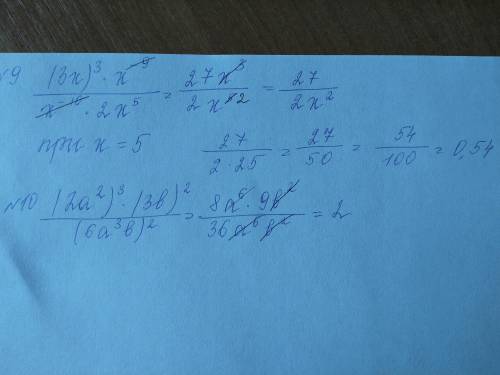 №9 (3x)³ · x⁻⁹ / x⁻¹⁰ · 2x⁵ = 27x³ / 2x⁵2 = 27 / 2x²
при x = 5 27 / 2·25 = 27 / 50 = 54 / 100 = 0,54
№10 (2a²)³ · (3b)² / (6a³b)² = 8a⁶ · 9b² / 36a⁶b² = 2